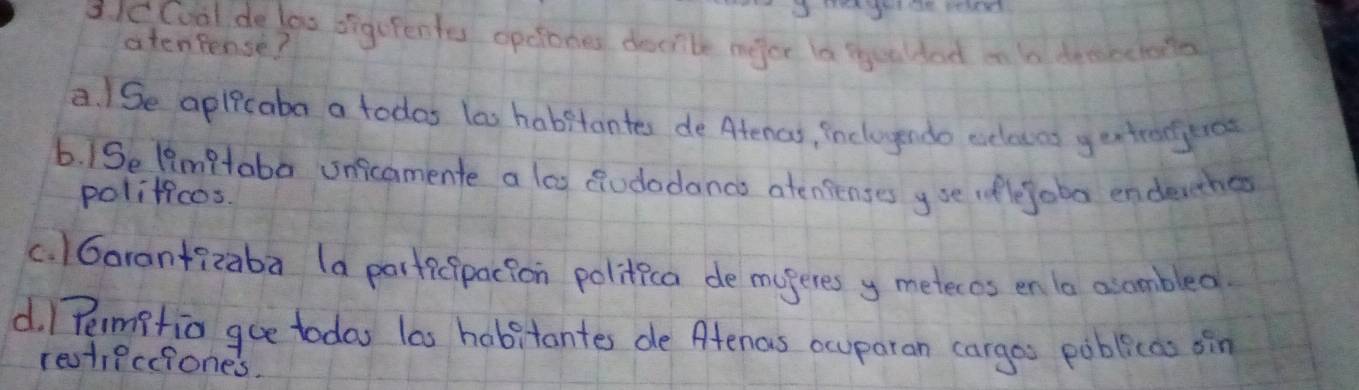 y mayor de
3.) ¿Cual de las siguientes opciones describe mejor la igualdad en la democracia
ateniense?
a.) Se aplicaba a todos los habitantes de Atenas, incluyendo esclavos y extranjeros
b.) Se limitaba unicamente a los ciudadanos atenienses y se reflejaba en derechos
politicos.
c.) Garantizaba la participacion politica de mujeres y metecos en la asamblea.
d.) Permitia que todos los habitantes de Atenas ocuparan cargos publicos sin
restricciones.